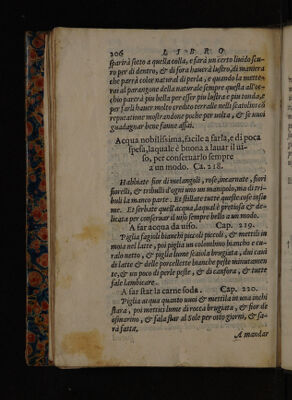 206 LIBRO
sparirà sieto a questa colla, e farà un certo liuido scu-
ro per di dentro, & di fora hauerà lustro, di maniera
che parrà color natural di perla, e quando la mette-
rai al parangone della naturale sempre questa all'oc-
chio parerà piu bella per esser piu lustra e piu tonda, e
per farli hauer molto credito terralle nelli scatolini cō
reputatione mostrandone poche per volta, & se vuoi
guadagnar bene fanne assai.
Acqua nobilissima, facile a farla, e di poca
spesa, laquale è buona a lauar il ui-
so, per conseruarlo sempre
a un modo. Ca. 218.
Habbiate fior di melangoli, rose, incarnate, fiori
fiorelli, & tribulli d'ogni uno un manipolo, ma di tri-
buli la manco parte. Et stillate tutte queste cose insie
me. Et serbate quest'acqua, laqual è pretiosa & de-
licata per conseruar il uiso sempre bello a un modo.
A far acqua da uiso. Cap. 219.
Piglia fagioli bianchi piccoli piccoli, & mettili in
moia nel latte, poi piglia un colombino bianco e cu-
ralo netto, & piglia lume scaiola brugiata, dui cani
di latte & delle porcellette bianche peste minutamen
te, & un poco di perle peste, & di canfora, & tutte
falle lambicare.
A far star la carne soda. Cap. 220.
Piglia acqua quanto uuoi & mettila in una inchi
stara, poi mettici lume di rocca brugiata, & fior de
osmarino, & fala star al Sole per otto giorni, & sa-
rà fatta.
A mandar